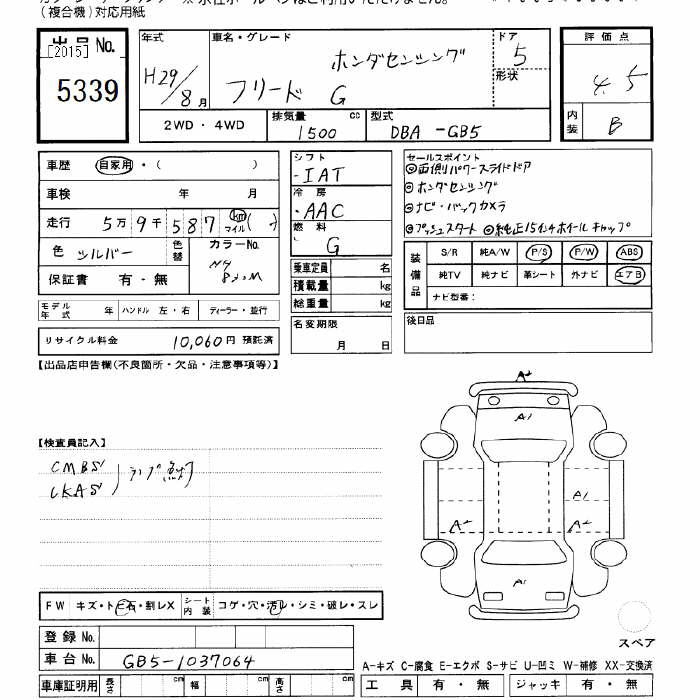 (複合機)対応用紙
出品No.
[2015]
5339
年式 H29/8月
車名・グレード
ホンダセンシング
フリード G
ドア 5
形状
評価点
4.5
2WD ・ 4WD
排気量 1500 cc
型式 DBA -GB5
内装 B
車歴 自家用 ・( )
車検 年 月
走行 5万9千587 km マイル( )
色 シルバー 色替 カラーNo.
NH 830M
保証書 有・無
シフト
・IAT
冷房
・AAC
燃料
G
乗車定員 名
積載量 kg
総重量 kg
名変期限
月 日
セールスポイント
◎両側パワースライドドア
◎ホンダセンシング
◎ナビ・バックカメラ
◎プッシュスタート ◎純正15インチホイールキャップ
装備品
S/R 純A/W P/S P/W ABS
純TV 純ナビ 革シート 外ナビ エアB
ナビ型番:
モデル年式 年 ハンドル 左・右 ディーラー・並行
後日品
リサイクル料金 10,060円 預託済
【出品店申告欄(不良箇所・欠品・注意事項等)】
【検査員記入】
CMBS
LKAS
ランプ点灯
A2
A1
A1
A2
A2
A1
FW キズ・トビ石・割レX シート内装 コゲ・穴・汚レ・シミ・破レ・スレ
登録No.
車台No. GB5-1037064
車庫証明用 長さ cm 幅 cm 高さ cm
スペア
A-キズ C-腐食 E-エクボ S-サビ U-凹ミ W-補修 XX-交換済
工具 有・無 ジャッキ 有・無